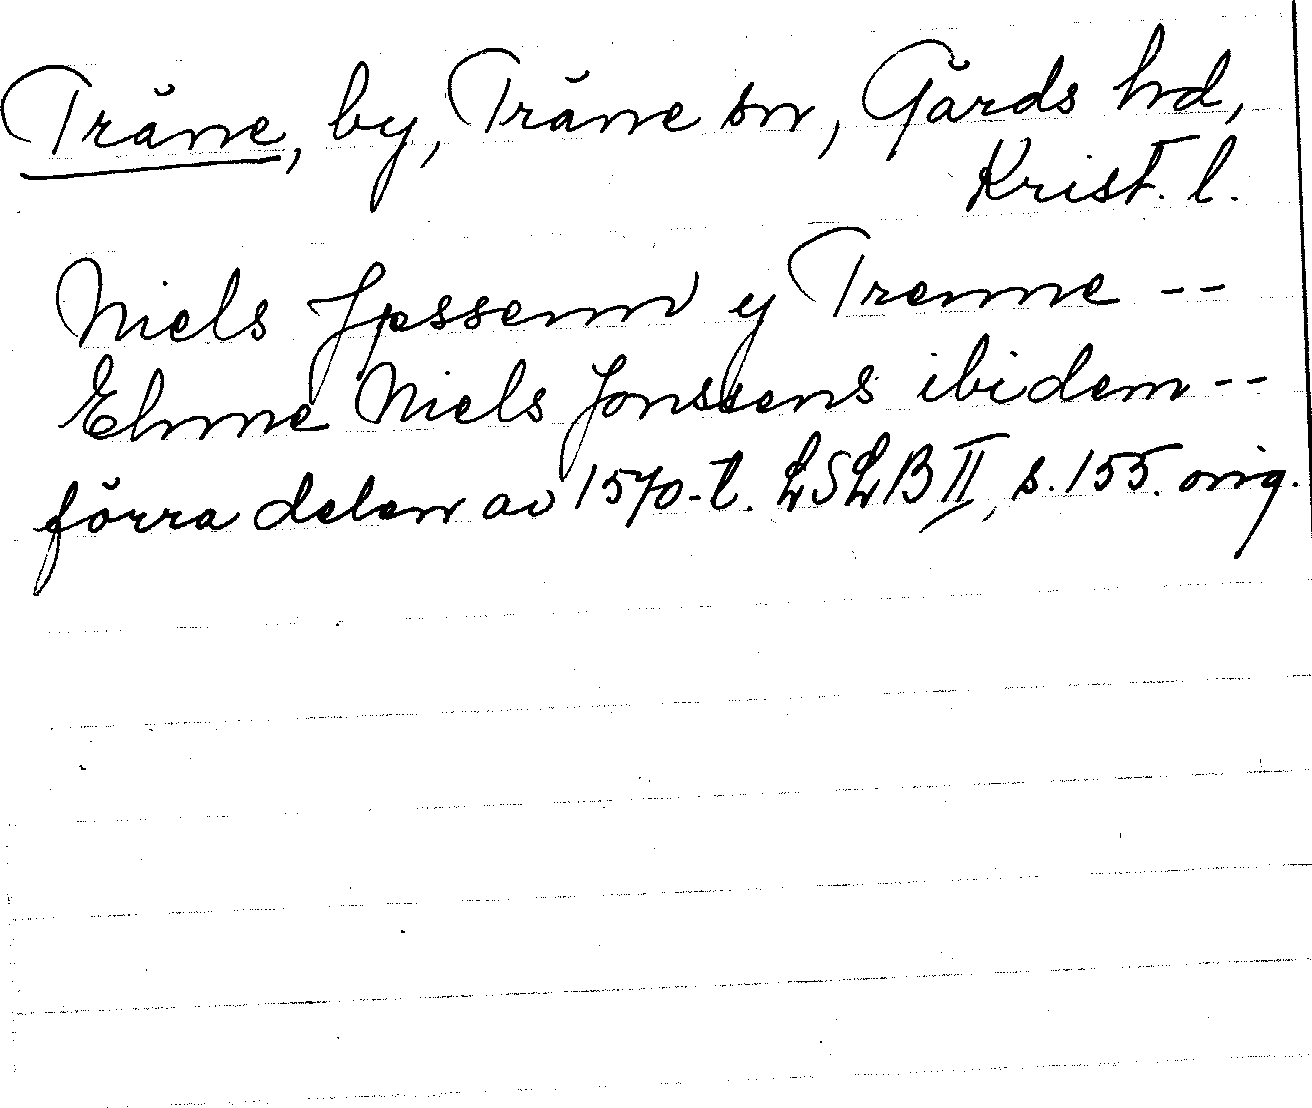 Träne, by, Träne sn, Gärds hd,
Krist. l.
Niels Jpssenn y Trenne --
Elnne Niels Jonssens ibidem --
förra delen av 1570-t. LSLB II, s. 155. orig.